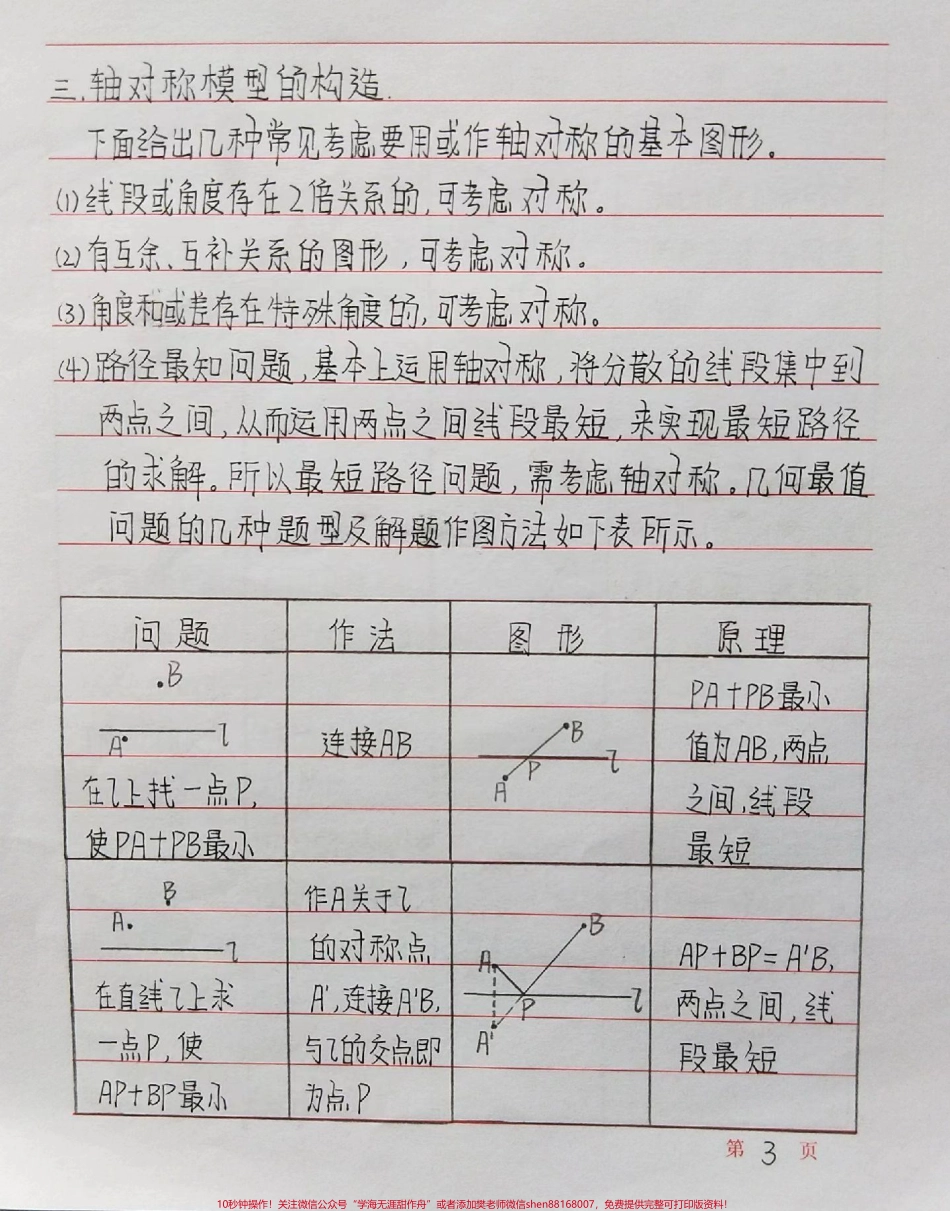 三.轴对称模型的构造.
下面给出几种常见考虑要用或作轴对称的基本图形。
(1)线段或角度存在2倍关系的,可考虑对称。
(2)有互余、互补关系的图形,可考虑对称。
(3)角度和或差存在特殊角度的,可考虑对称。
(4)路径最知问题,基本上运用轴对称,将分散的线段集中到
两点之间,从而运用两点之间线段最短,来实现最短路径
的求解。所以最短路径问题,需考虑轴对称。几何最值
问题的几种题型及解题作图方法如下表所示。
问题 作法 图形 原理
B
A l
在l上找一点P,
使PA+PB最小
连接AB
B
P l
A
PA+PB最小
值为AB,两点
之间,线段
最短
B
A
l
在直线l上求
一点P,使
AP+BP最小
作A关于l
的对称点
A',连接A'B,
与l的交点即
为点P
B
A
P l
A'
AP+BP=A'B,
两点之间,线
段最短
第3页
10秒钟操作!关注微信公众号“学海无涯甜作舟”或者添加樊老师微信shen88168007,免费提供完整可打印版资料!